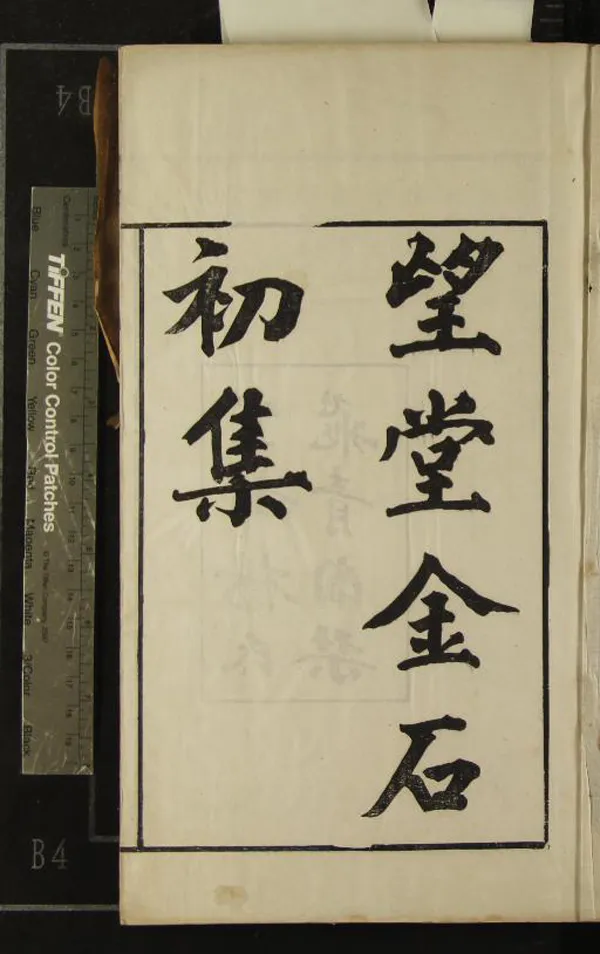 望堂金石
初集
B4
B4
TIFFEN Color Control Patches
© The Tiffen Company, 2007
Centimetres
Blue
Cyan
Green
Yellow
Red
Magenta
White
3/Color
Black